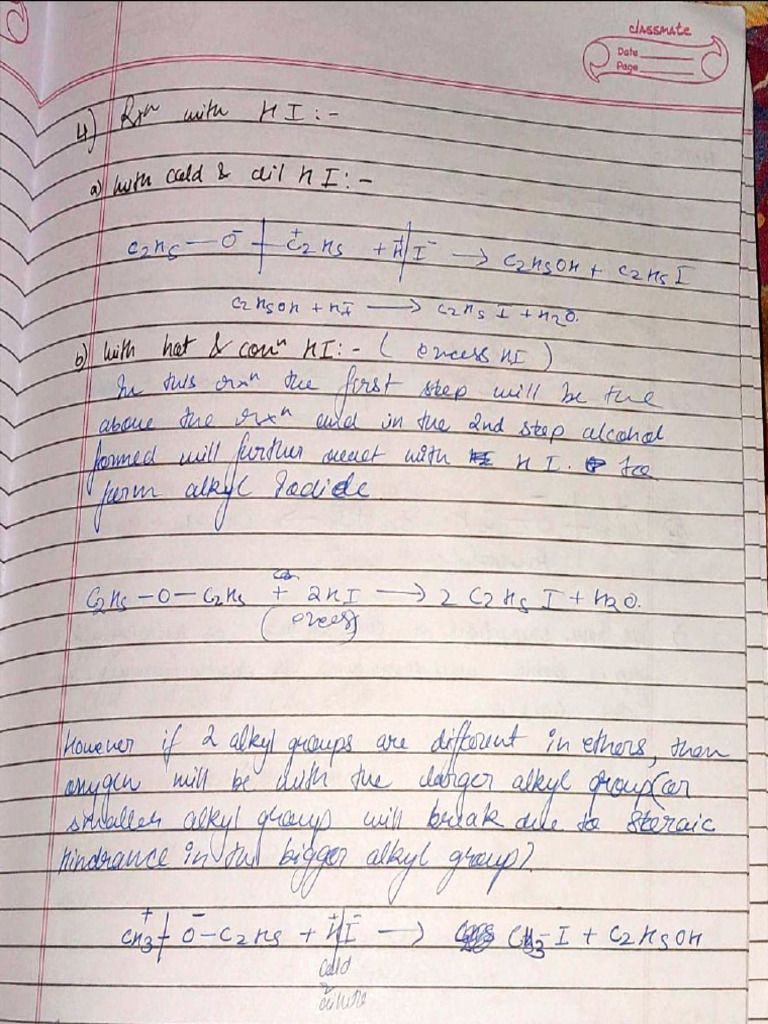 classmate
Date
Page
4) Rxn with HI :-
a) with cold & dil HI :-
C2H5 — O⁻ | C⁺2H5 + H⁺|I⁻ → C2H5OH + C2H5I
C2H5OH + HI → C2H5I + H2O.
b) with hot & concn HI :- (excess HI)
In this rxn the first step will be the
above the rxn and in the 2nd step alcohol
formed will further react with HI. to
form alkyl Iodide
C2H5 – O – C2H5 + 2HI → 2 C2H5I + H2O.
(excess)
However if 2 alkyl groups are different in ethers, then
oxygen will be with the larger alkyl group (or
smaller alkyl group will break due to steraic
hindrance in the bigger alkyl group)
CH3⁺ | O⁻ – C2H5 + H⁺|I⁻ → CH3–I + C2H5OH
Cold
dilute